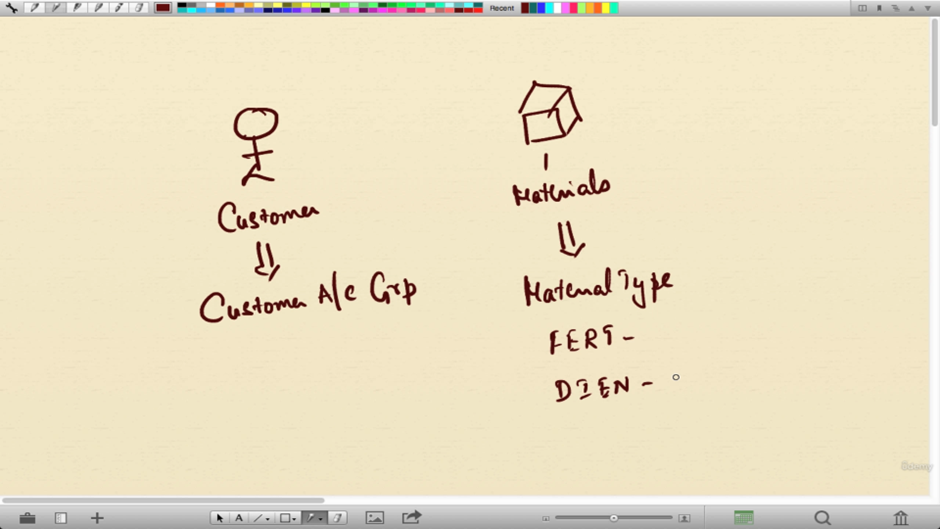 Recent
Customer
Customer A/c Grp
Materials
Material Type
FERT -
DIEN -
Udemy